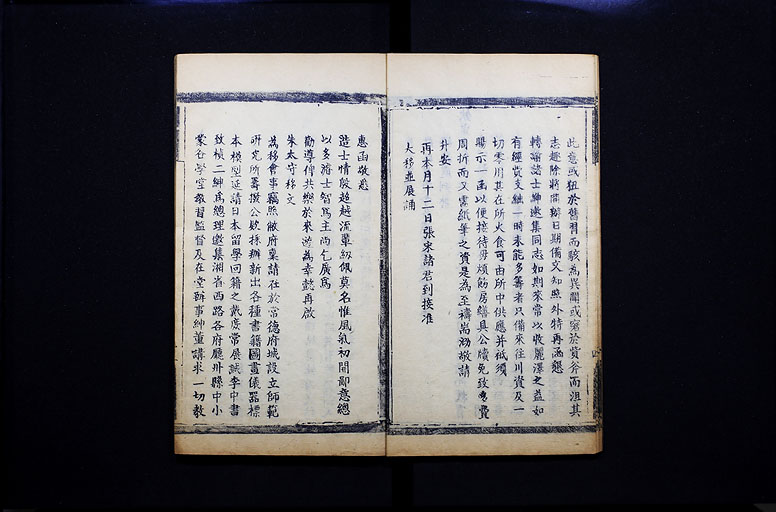 此意或狃於舊習而駭為異聞或窘於貲斧而沮其
志趣除將開辦日期備文知照外特再函懇
轉諭諸士紳邀集同志如期來常以收麗澤之益如
有經費支絀一時未能多籌者只備來往川資及一
切零用其在所火食可由所中供應并祗須
賜示一函以便接待毋煩飭房繕具公牘免致多費
周折而又需紙筆之資是為至禱耑泐敬請
升安
再本月十二日張宋諸君到接准
大移並展誦
惠函敬悉
造士情殷超越流輩紉佩莫名惟風氣初開鄙意總
以多濬士智為主尚乞廣為
勸導俾共樂於來遊為幸懿再啟
朱太守移文
為移會事竊照敝府稟請在於常德府城設立師範
研究所籌撥公款採辦新出各種書籍圖畫儀器標
本模型延請日本留學回籍之戴庶常展誠李中書
致楨二紳為總理邀集湘省西路各府廳州縣中小
蒙各學堂教習監督及在堂辦事紳董講求一切教